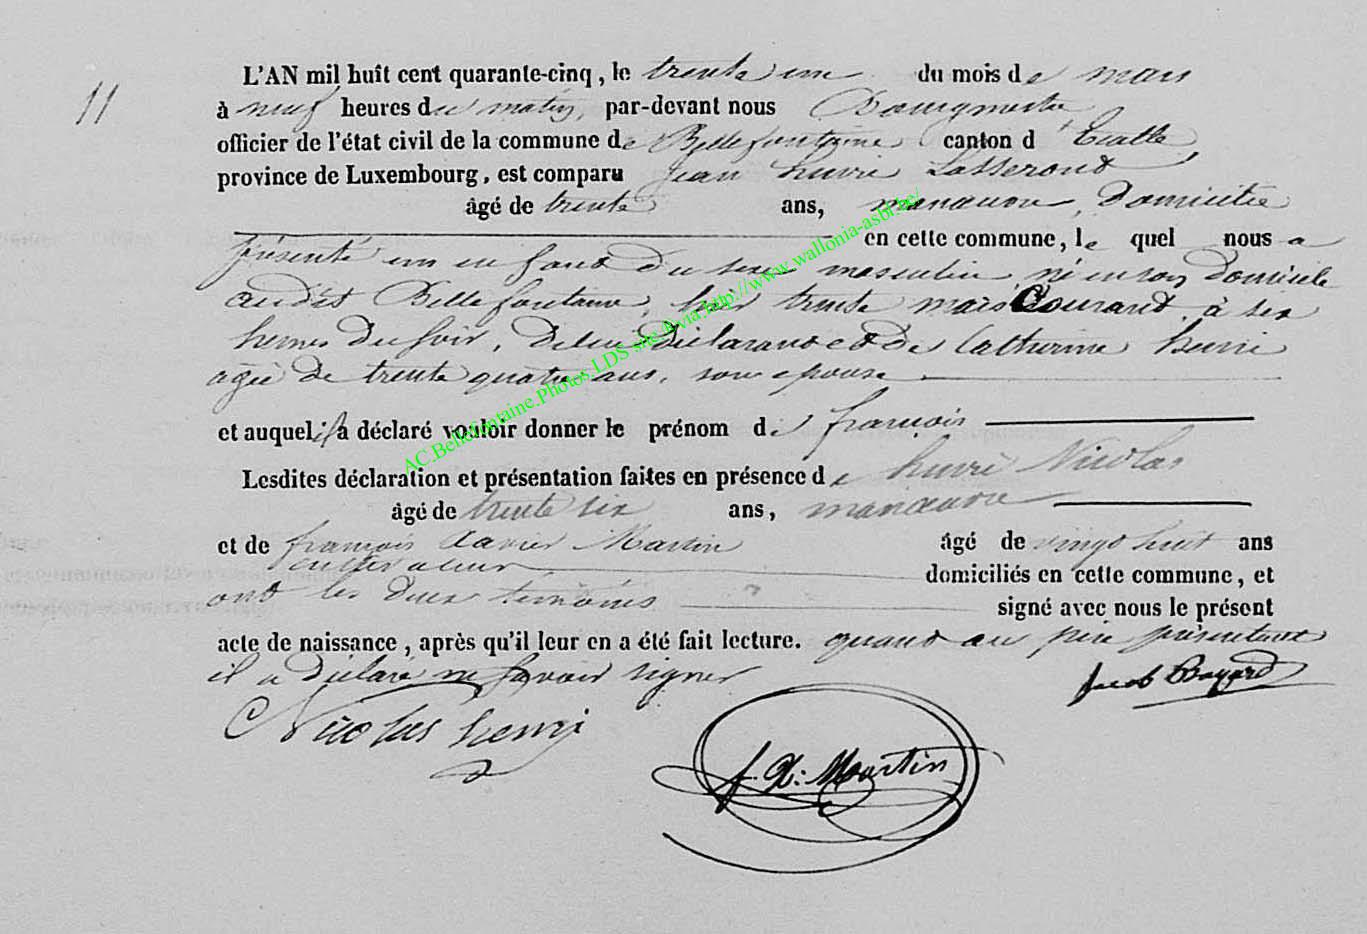 11
L'AN mil huit cent quarante-cinq, le trente un du mois de mars
à neuf heures du matin, par-devant nous Bourgmestre
officier de l'état civil de la commune de Bellefontaine canton d'Etalle
province de Luxembourg, est comparu Jean henri Lasserond
âgé de trente ans, manœuvre, domicilié
en cette commune, le quel nous a
présenté un enfant du sexe masculin né en son domicile
audit Bellefontaine, hier trente mars Courant, à six
heures du soir, de lui déclarant et de Catherine henri
agée de trente quatre ans, son epouse
et auquel il a déclaré vouloir donner le prénom de françois
Lesdites déclaration et présentation faites en présence de henri Nicolas
âgé de trente six ans, manœuvre
et de françois Xavier Martin âgé de vingt huit ans
cultivateur domiciliés en cette commune, et
ont les deux témoins signé avec nous le présent
acte de naissance, après qu'il leur en a été fait lecture. quant au père présentant
il a déclaré ne savoir signer
Jacob Bayard
Nicolas henri
f. X: Martin
AC.Bellefontaine.Photos.LDS site.fr via:http://www.wallonia-asbl.be/